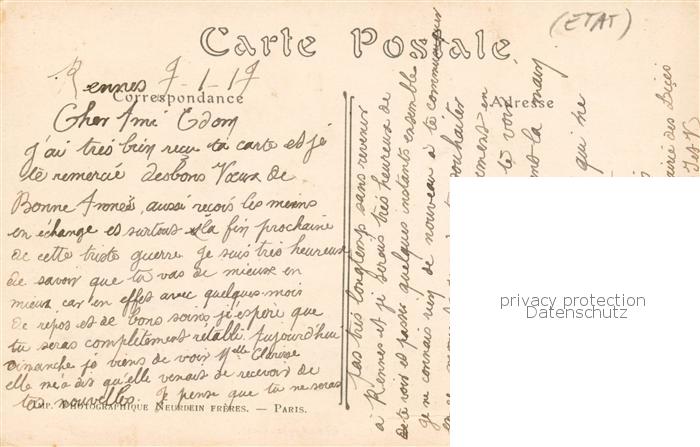 (ETAT)
Carte Postale
Rennes 7-1-17
Correspondance
Adresse
Cher Ami Edom
j'ai très bien reçu ta carte et je
te remercié des bons Vœux de
Bonne Année, aussi reçois les miens
en échange et surtout à la fin prochaine
de cette triste guerre. Je suis très heureux
de savoir que tu vas de mieux en
mieux car en effet avec quelques mois
de répos et de bons soins j'éspère que
tu seras complètement rétabli. Aujourd'hui
Dimanche je viens de voir Melle Clarisse
elle m'a dis qu'elle venait de recevoir de
tes nouvelles. Je pense que tu ne seras
IMP. PHOTOGRAPHIQUE NEURDEIN FRÈRES. — PARIS.
pas très longtemp sans revenir
à Rennes et je serais très heureux de
te voir et passé quelques instants ensemble
Je ne connais rien de nouveau à te communiquer
souhaiter
te voir
la main
qui ne
privacy protection
Datenschutz